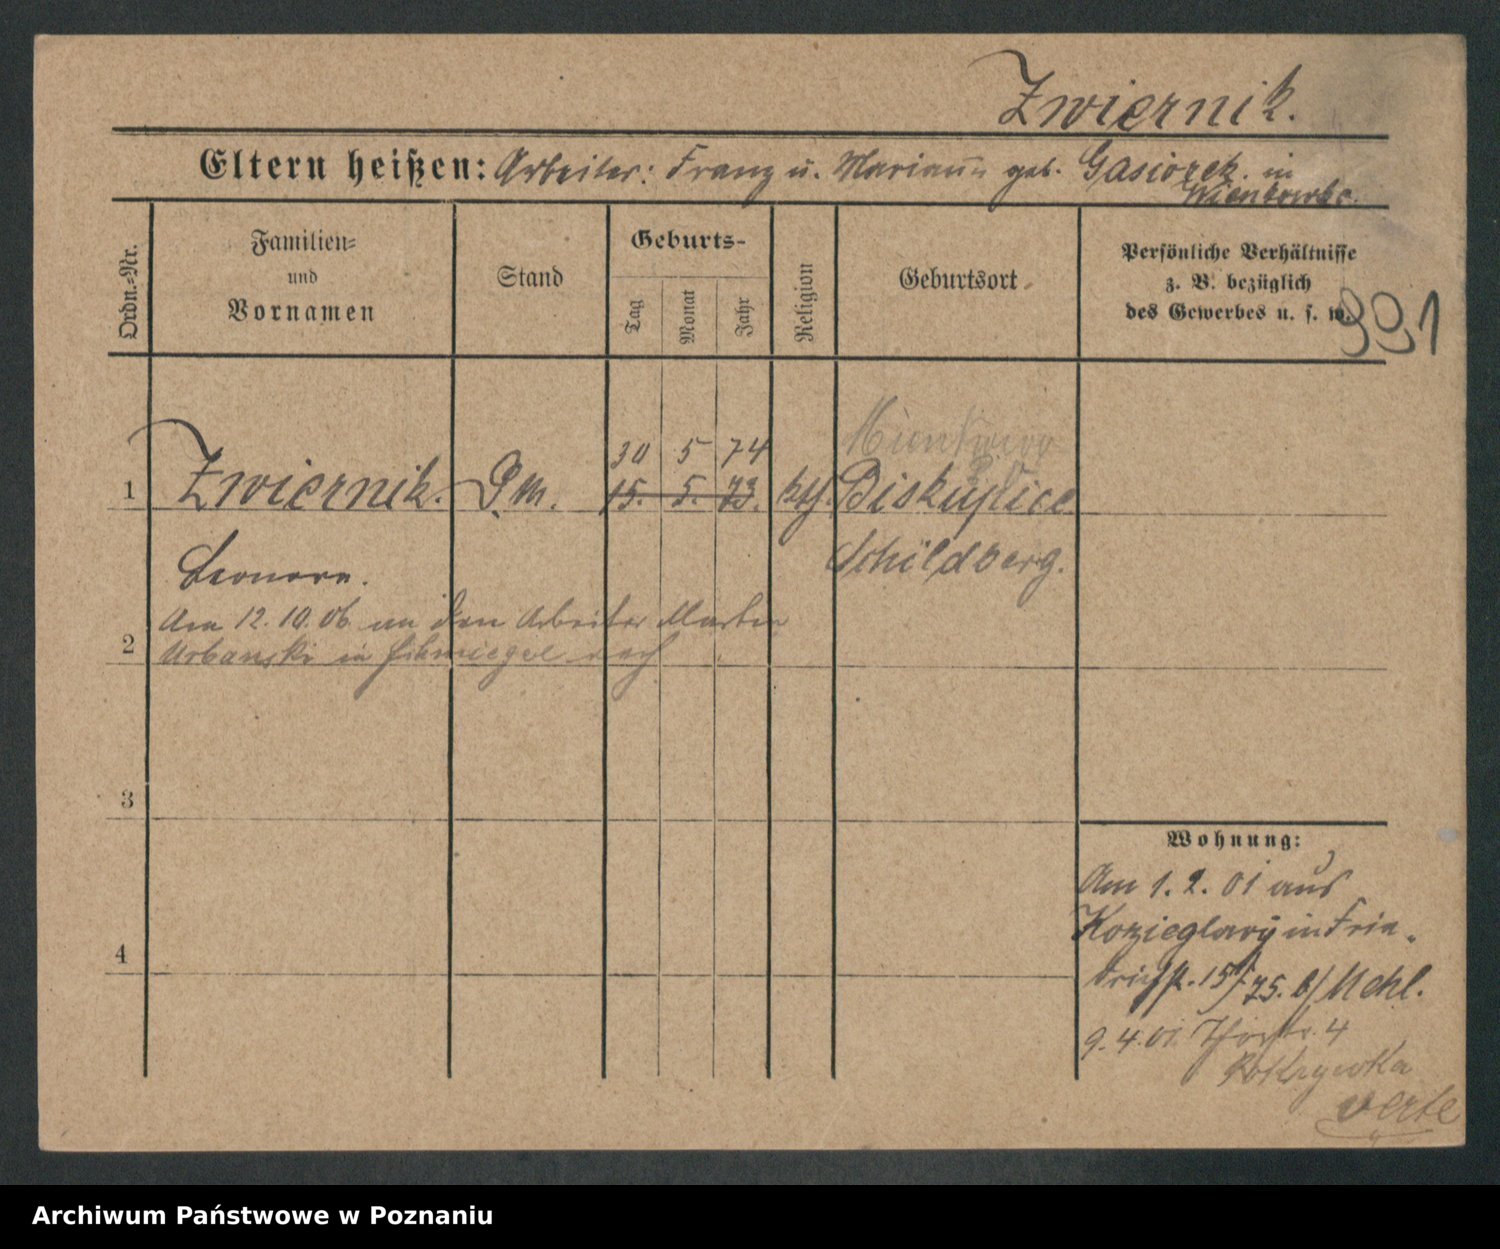 Zwiernik.
Eltern heißen: Arbeiter: Franz u. Mariann geb. Gasiorek. in
Ordn.-Nr.
Familien=
und
Vornamen
Stand
Geburts-
Tag
Monat
Jahr
Religion
Geburtsort
Persönliche Verhältnisse
z. B. bezüglich
des Gewerbes u. s. w.
991
30 5 74
1 Zwiernik. D.M. 15. 5. 73. kth. Biskupice
Schildberg.
Leonore.
Am 12.10.06 an den Arbeiter Martin
2 Urbanski in Schmiegel
3
Wohnung:
Am 1.2.01 aus
Kozieglowy in Frie-
4
drichst. 15/ 75. b/ Uchl.
9.4.01. 4
Pokrzywka
verte
Archiwum Państwowe w Poznaniu